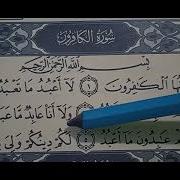 سُورَةُ الْكَافِرُونَ
بِسْمِ اللَّهِ الرَّحْمَٰنِ الرَّحِيمِ
الْكَٰفِرُونَ ١ لَا أَعْبُدُ مَا
وَلَا أَنَا عَابِدٌ مَا
عَٰبِدُونَ مَا أَعْبُدُ ٥ لَكُمْ دِينُكُمْ وَلِيَ